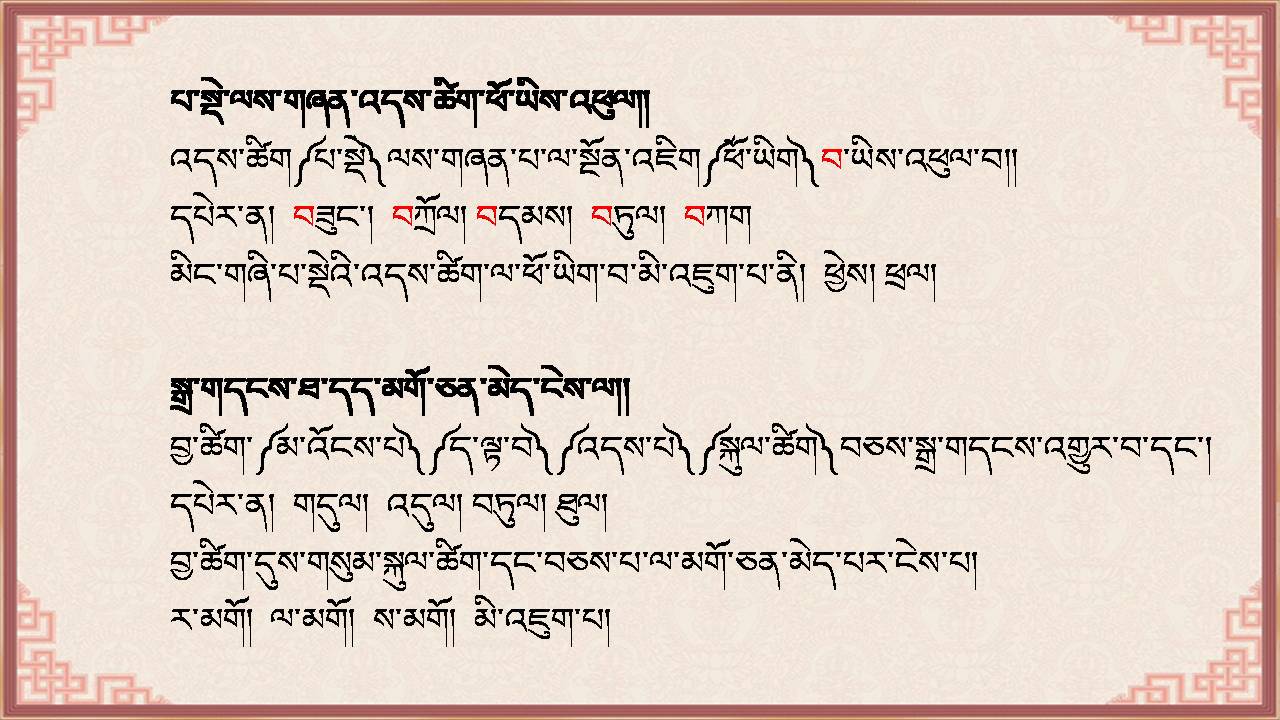 པ་སྡེ་ལས་གཞན་འདས་ཚིག་ཕོ་ཡིས་འཕུལ།།
འདས་ཚིག༼པ་སྡེ༽ལས་གཞན་པ་ལ་སྔོན་འཇིག༼ཕོ་ཡིག༽བ་ཡིས་འཕུལ་བ།།
དཔེར་ན། བཟུང་། བཀྲོལ། བདམས། བཏུལ། བཀག
མིང་གཞི་པ་སྡེའི་འདས་ཚིག་ལ་ཕོ་ཡིག་བ་མི་འཇུག་པ་ནི། ཕྱེས། ཕྲལ།
སྒྲ་གདངས་ཐ་དད་མགོ་ཅན་མེད་ངེས་ལ།།
བྱ་ཚིག་༼མ་འོངས་པ༽༼ད་ལྟ་བ༽༼འདས་པ༽༼སྐུལ་ཚིག༽བཅས་སྒྲ་གདངས་འགྱུར་བ་དང་།
དཔེར་ན། གདུལ། འདུལ། བཏུལ། ཐུལ།
བྱ་ཚིག་དུས་གསུམ་སྐུལ་ཚིག་དང་བཅས་པ་ལ་མགོ་ཅན་མེད་པར་ངེས་པ།
ར་མགོ། ལ་མགོ། ས་མགོ། མི་འཇུག་པ།